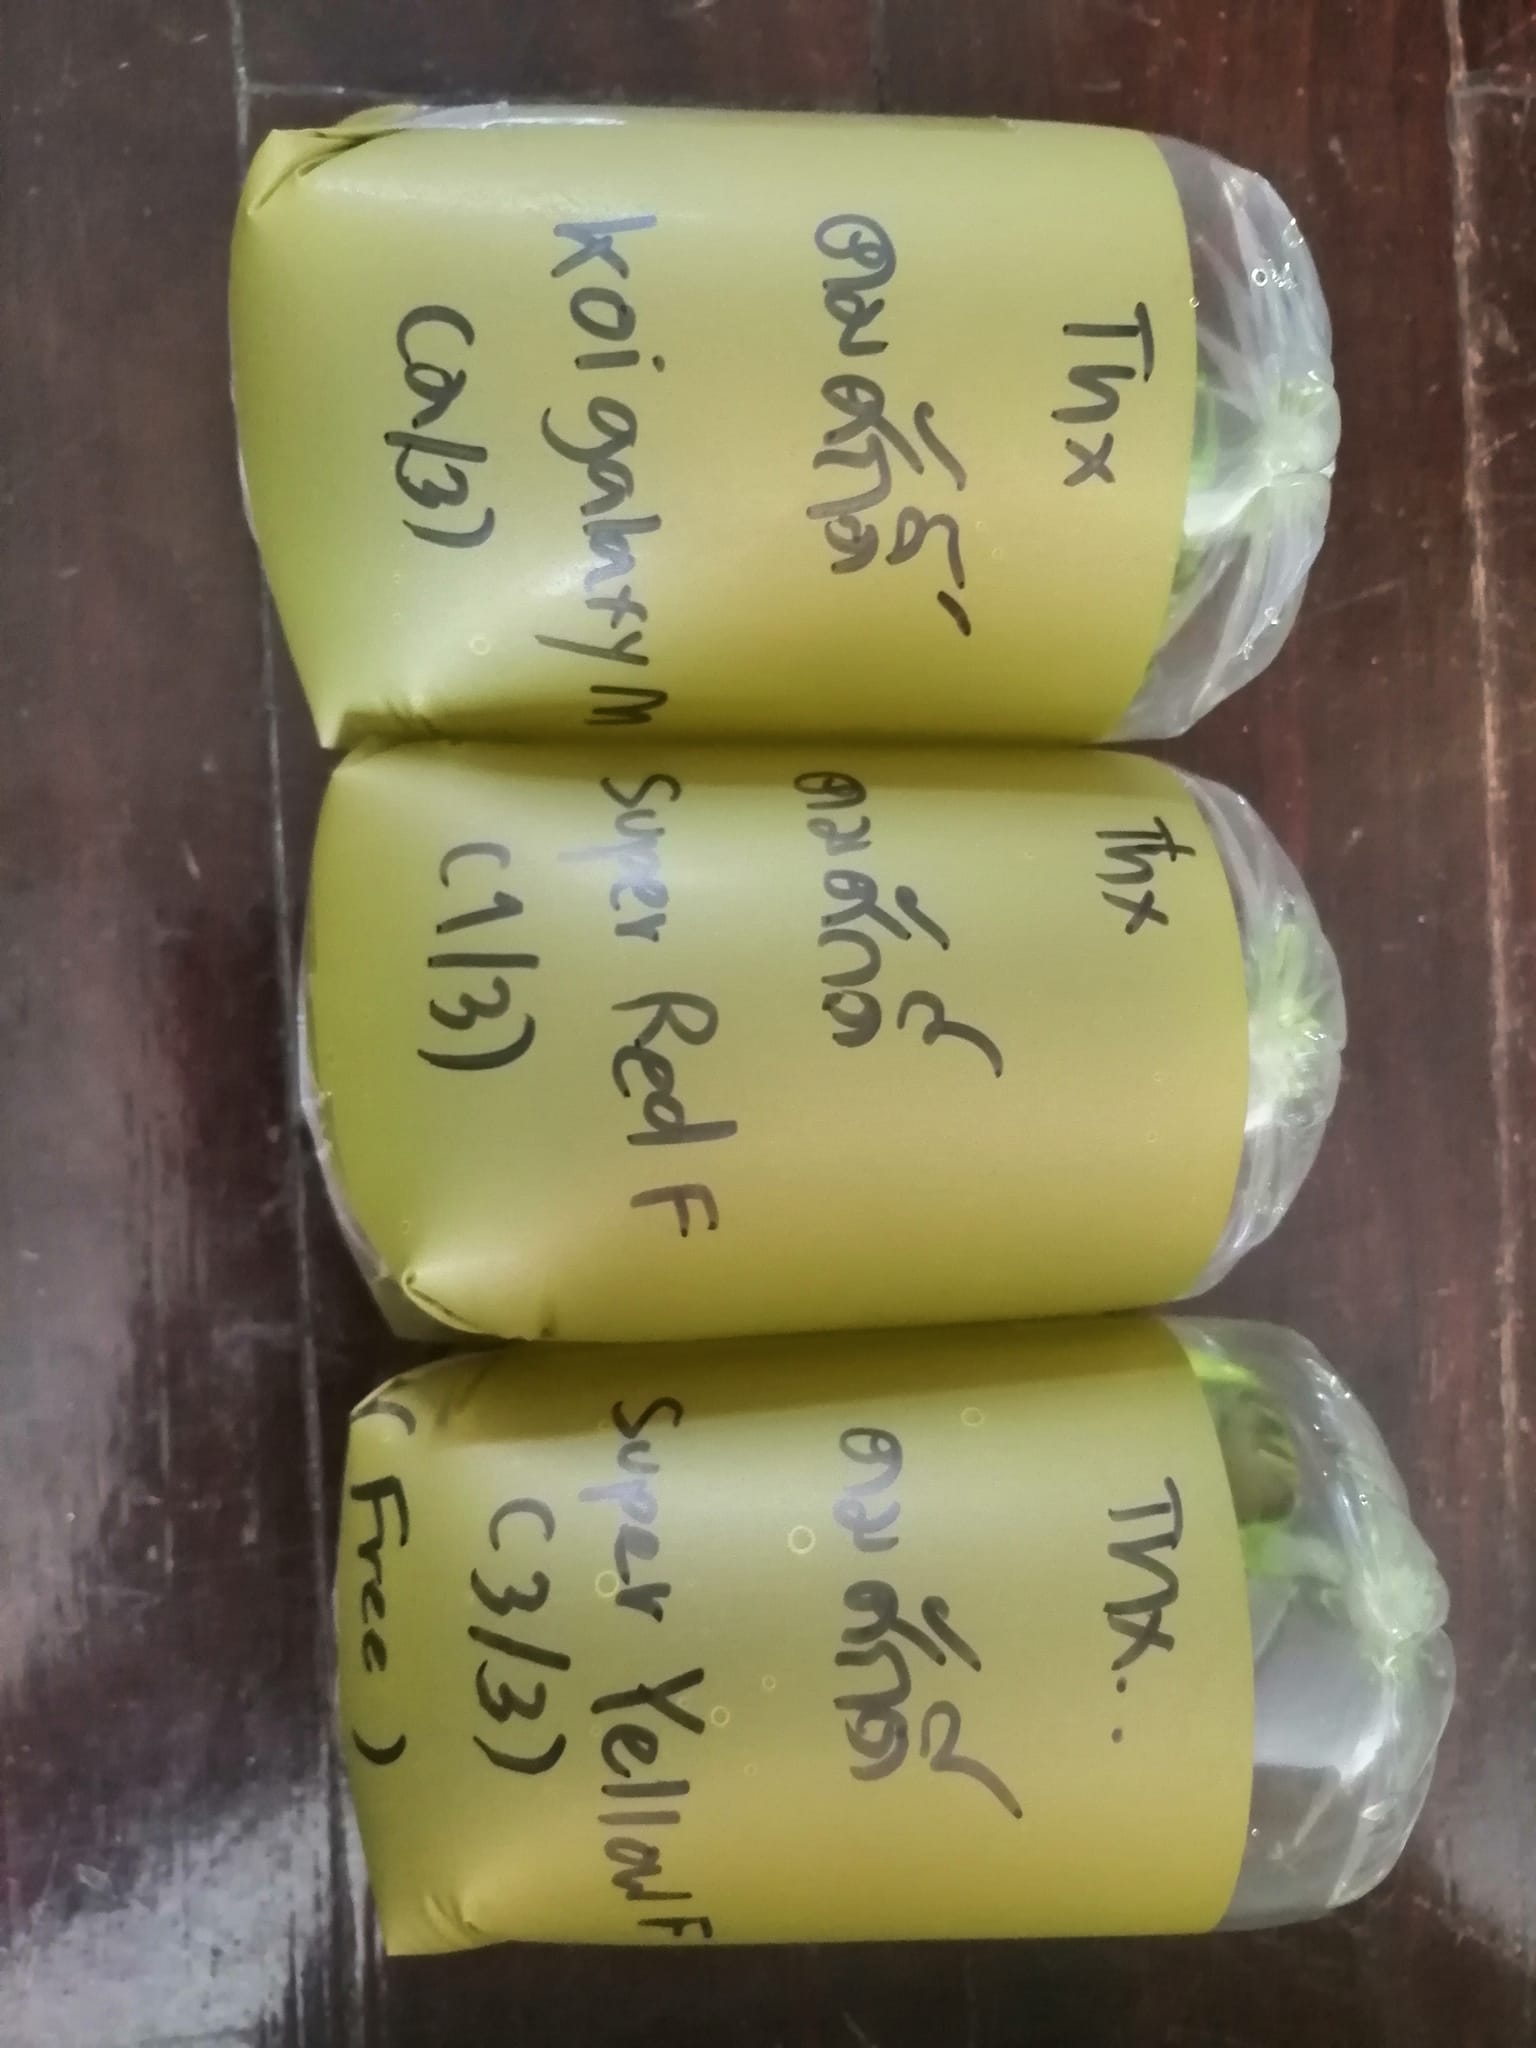 Thx
คมศักดิ์
Koi galaxy M
(2/3)
Thx
คมศักดิ์
Super Red F
(1/3)
Thx..
คมศักดิ์
Super Yellow F
(3/3)
(Free)